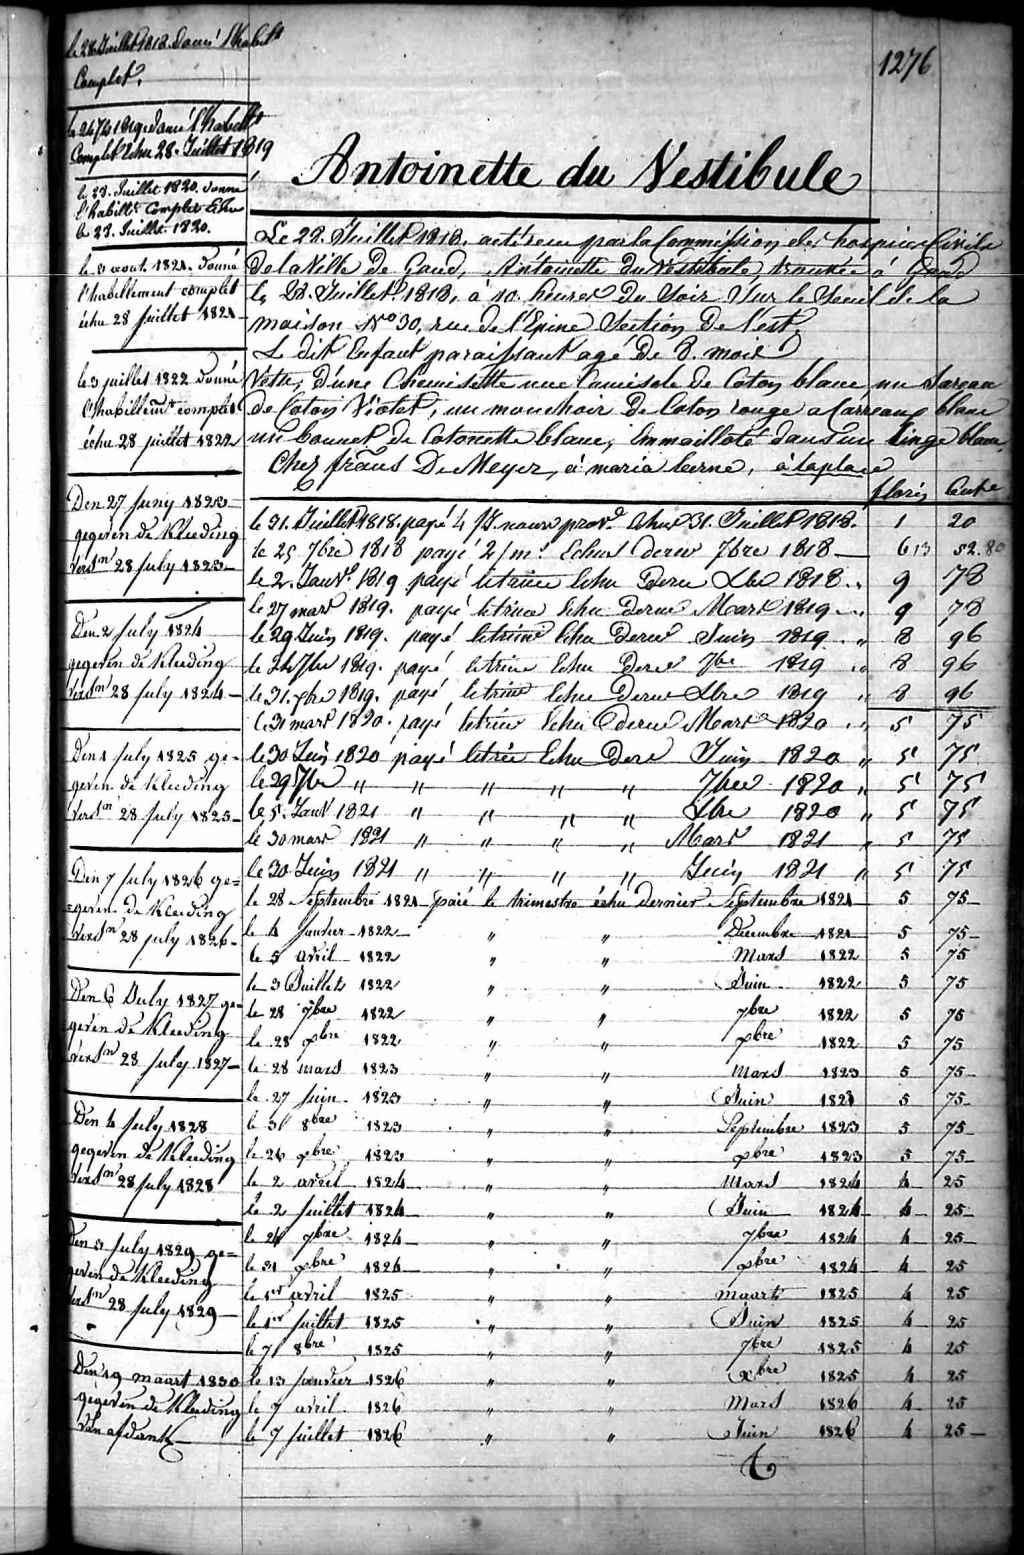 1276
le 28 Juillet 1818 donné l'habit
Complet.
donné l'habt
Complet Echu 28. Juillet 1819
le 28. Juillet 1820. donné
l'habillt Complet Echu
le 28. Juillet 1820.
le 3 aout. 1821. donné
l'habillement complet
échu 28 juillet 1821
le 3 juillet 1822 donné
l'habillemt complet
échu 28 juillet 1822
Den 27 Juny 1823
gegeven de Kleeding
28 July 1823
Den 2 July 1824
gegeven de Kleeding
28 July 1824
Den 1 July 1825 ge-
geven de Kleeding
28 July 1825
Den 7 July 1826 ge=
geven de Kleeding
28 July 1826
Den 6 July 1827 ge-
geven de Kleeding
28 July 1827
Den 4 July 1828
gegeven de Kleeding
28 July 1828
Den 3 July 1829 ge=
geven de Kleeding
28 July 1829
Den 19 maart 1830
gegeven de Kleeding
van afdank
Antoinette du Vestibule
Le 28. Juillet 1818. a été reçu par la Commission des hospices Civils
de la Ville de Gand, Antoinette du Vestibule, trouvée à Gand
le 28. Juillet 1818, à 10. heures du Soir Sur le Seuil de la
maison No 30, rue de l'Epine Section de l'est,
Le dit Enfant paraissant agé de 8. mois
Vetu, d'une Chemisette une Camisole de Coton blanc un Sareau
de Coton Violet, un mouchoir de Coton rouge a Carreaux blanc
un bonnet de Cotonette blanc, Emmailloté dans un linge blanc,
Chez frans De Meyer, à maria berne, à la place
floris Cents
le 31. Juillet 1818. payé 4 Js. nourr prove. Echus 31. Juillet 1818. 1 20
le 25 7bre 1818 payé 2/m. Echus derer 7bre 1818 6 13 52.80
le 2. Janvr 1819 payé letrim Echu Derer Xbre 1818 " 9 78
le 27 mars 1819. payé letrim Echu derer Mars 1819 " 9 78
le 29 Juin 1819. payé letrim Echu Derer Juin 1819 " 8 96
le 24 7bre 1819. payé letrim Echu Derer 7bre 1819 " 8 96
le 31. xbre 1819. payé letrim Echu Derer Xbre 1819 " 8 96
le 31 mars 1820. payé letrim Echu derer Mars 1820 " 5 75
le 30 Juin 1820 payé letrim Echu Derer Juin 1820 " 5 75
le 29 7bre " " " " " 7bre 1820 " 5 75
le 5. Janv 1821 " " " " Xbre 1820 " 5 75
le 30 mars 1821 " " " " Mars 1821 " 5 75
le 30 Juin 1821 " " " " Juin 1821 " 5 75
le 28 Septembre 1821 payé le trimestre échu dernier Septembre 1821 5 75
le 4 Janvier 1822 " " Décembre 1821 5 75
le 5 avril 1822 " " Mars 1822 5 75
le 3 Juillet 1822 " " Juin 1822 5 75
le 28 7bre 1822 " " 7bre 1822 5 75
le 28 xbre 1822 " " xbre 1822 5 75
le 28 mars 1823 " " mars 1823 5 75
le 27 Juin 1823 " " Juin 1823 5 75
le 3 8bre 1823 " " Septembre 1823 5 75
le 26 xbre 1823 " " xbre 1823 5 75
le 2 avril 1824 " " Mars 1824 4 25
le 2 juillet 1824 " " Juin 1824 4 25
le 24 7bre 1824 " " 7bre 1824 4 25
le 31 xbre 1824 " " xbre 1824 4 25
le 1er avril 1825 " " maart 1825 4 25
le 1er juillet 1825 " " Juin 1825 4 25
le 7 8bre 1825 " " 7bre 1825 4 25
le 13 janvier 1826 " " xbre 1825 4 25
le 7 avril 1826 " " Mars 1826 4 25
le 7 juillet 1826 " " Juin 1826 4 25